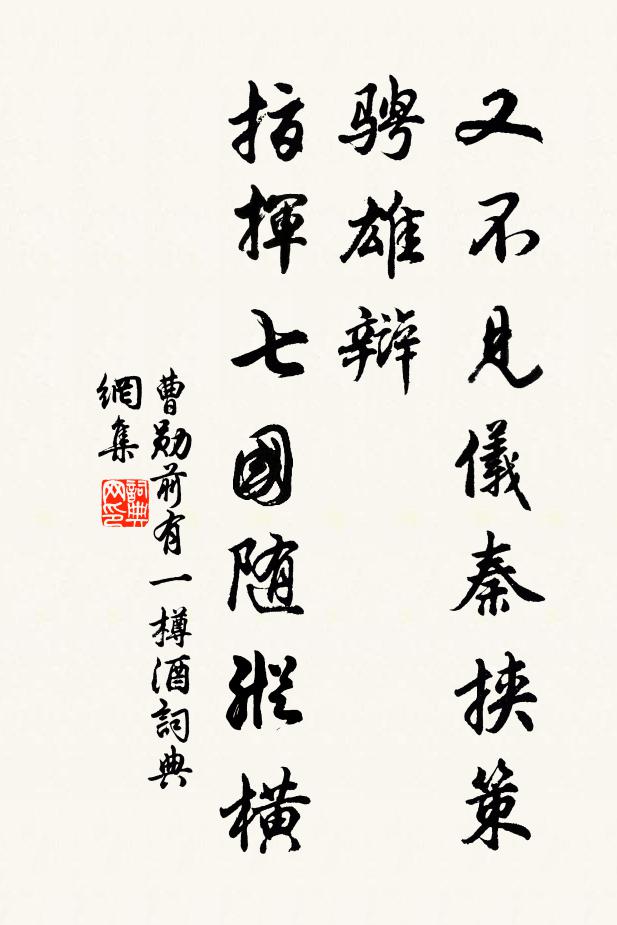 又不見儀秦挾策
骋雄辯
指揮七國随縱横
曹勛前有一樽酒詞典
網集
詞典
网印